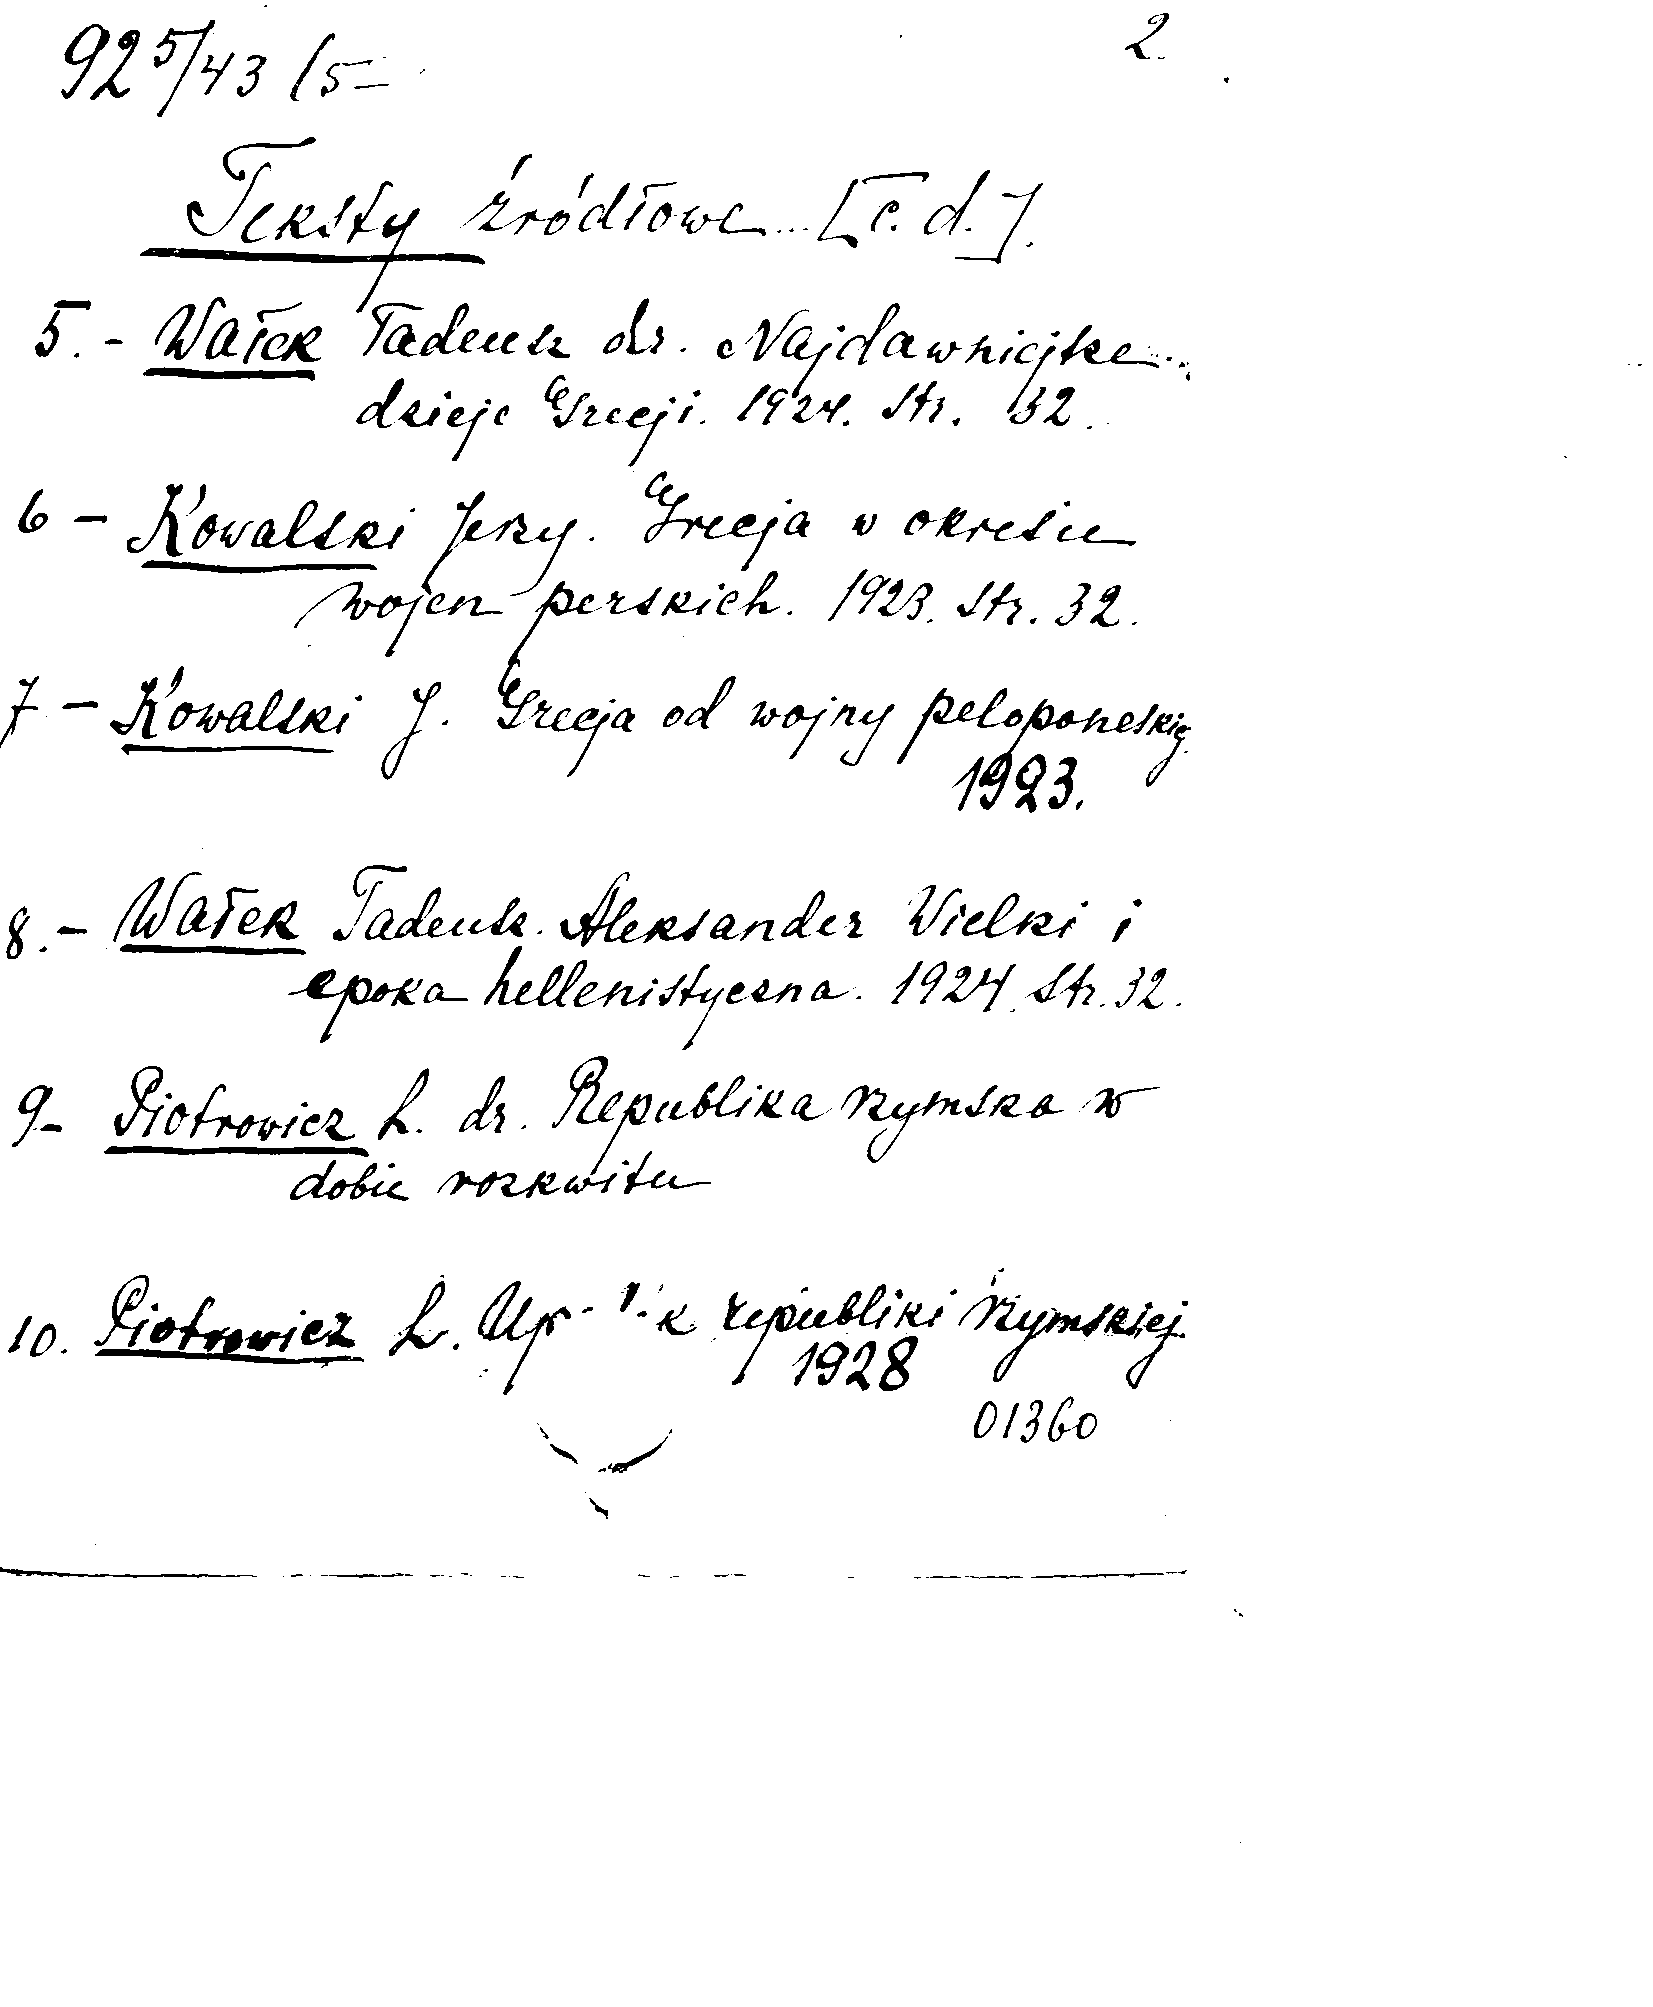 2.
92 5/43 (5=
Teksty źródłowe... [c. d.].
5.- Wałek Tadeusz dr. Najdawniejsze
dzieje Grecji. 1924. Str. 32.
6 - Kowalski Jerzy. Grecja w okresie
wojen perskich. 1923. Str. 32.
7 - Kowalski J. Grecja od wojny peloponeskiej
1923.
8.- Wałek Tadeusz. Aleksander Wielki i
epoka hellenistyczna. 1924. Str. 32.
9- Piotrowicz L. dr. Republika rzymska w
dobie rozkwitu
10. Piotrowicz L. republiki rzymskiej.
1928
01360